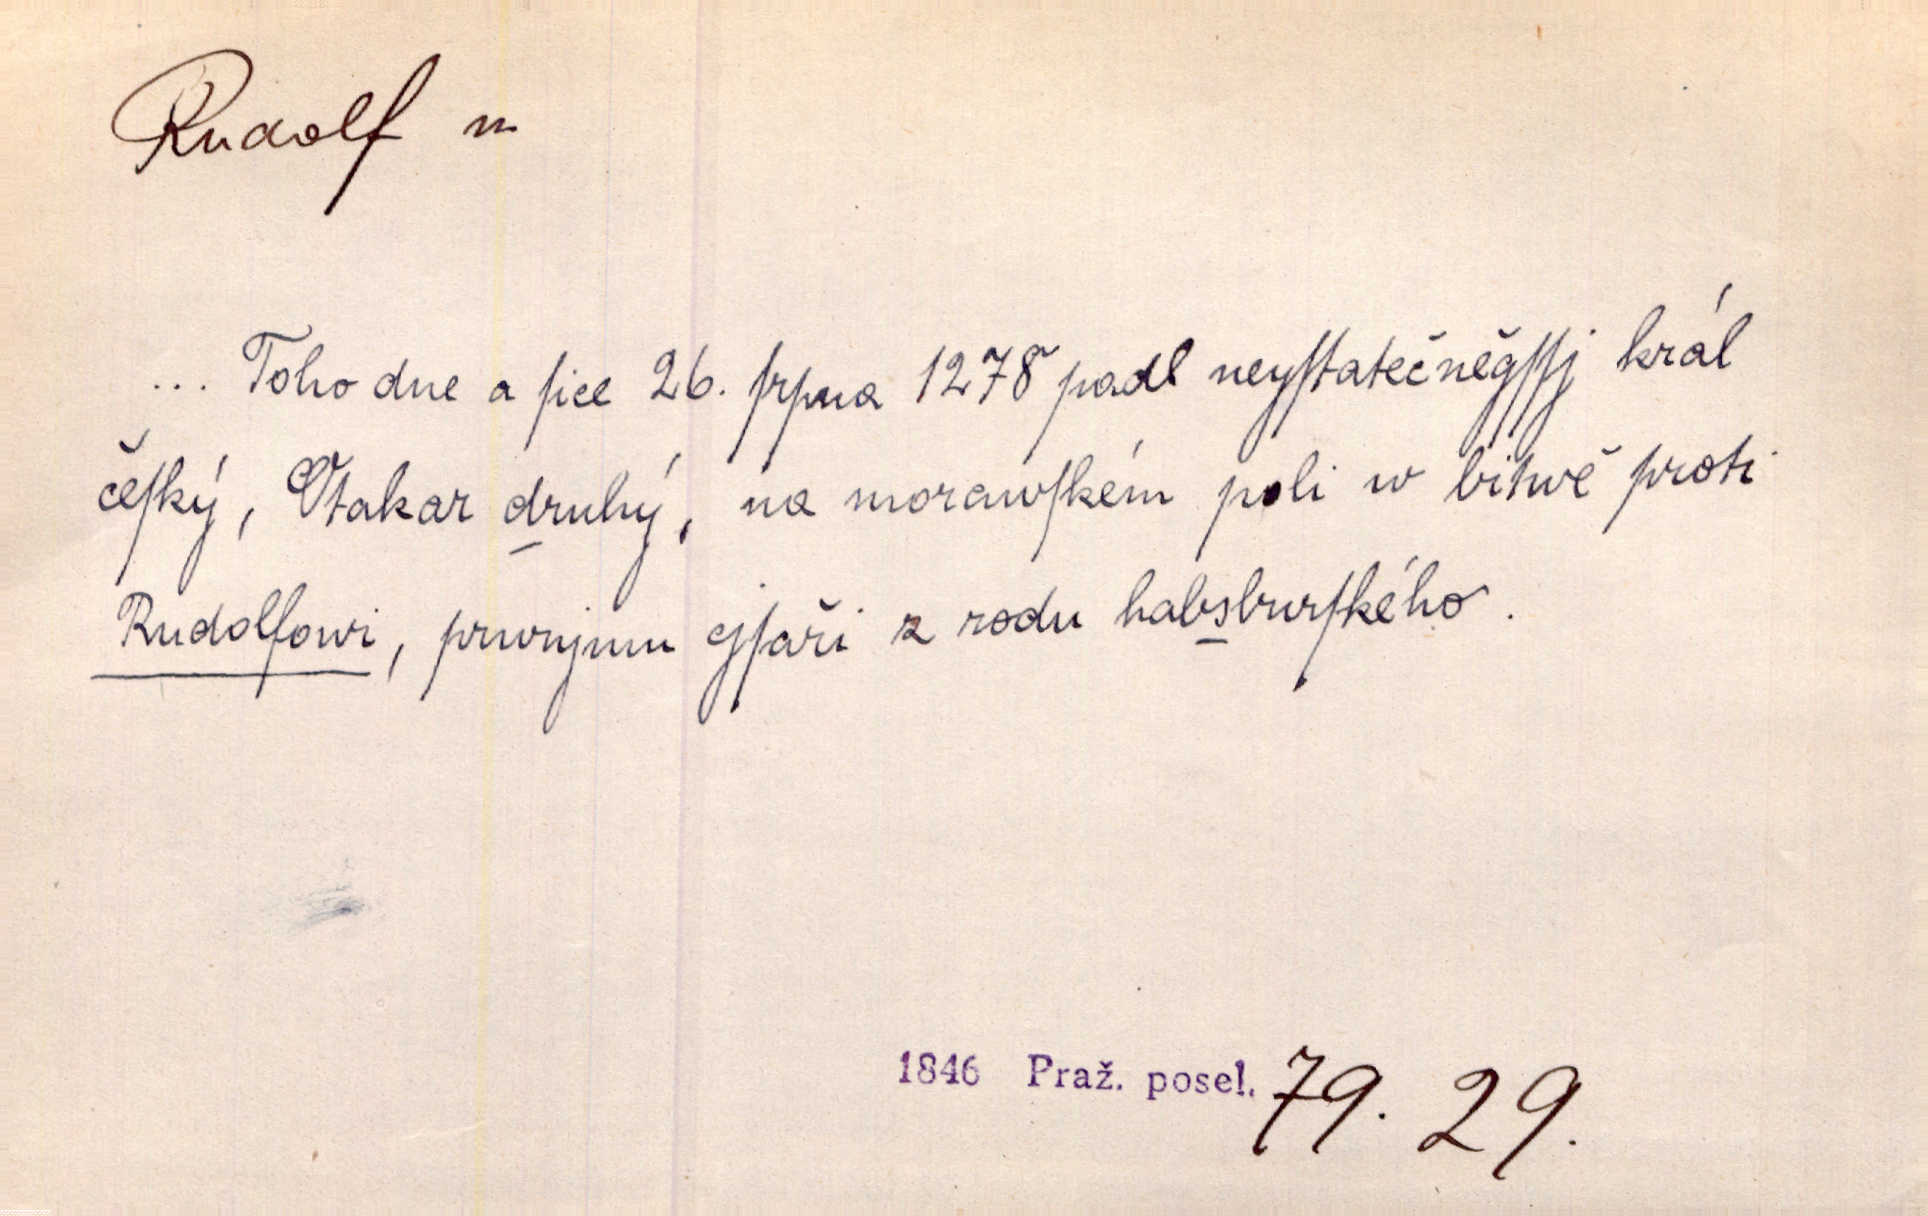 Rudolf m
... Toho dne a ſice 26. ſrpna 1278 padl neyſtatečněgſſj král
čeſký, Otakar druhý, na morawſkém poli w bitwě proti
Rudolfowi, prwnjmu cjſaři z rodu habsburſkého.
1846 Praž. posel. 79. 29.